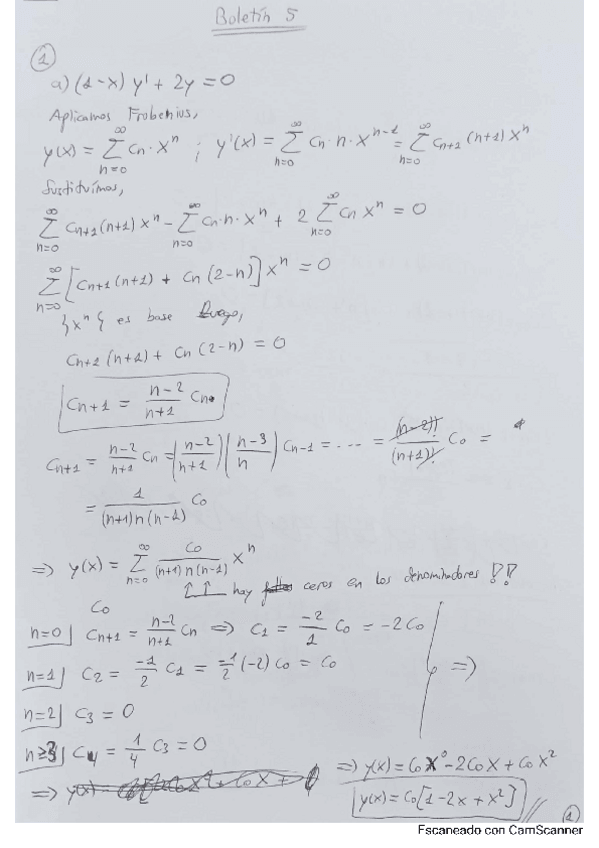 Boletín 5
①
a) (1-x) y' + 2y = 0
Aplicamos Frobenius,
y(x) = ∑_{n=0}^{∞} Cn · x^n ; y'(x) = ∑_{n=0}^{∞} Cn · n · x^{n-1} = ∑_{n=0}^{∞} C_{n+1} (n+1) x^n
Sustituímos,
∑_{n=0}^{∞} C_{n+1} (n+1) x^n - ∑_{n=0}^{∞} Cn · n · x^n + 2 ∑_{n=0}^{∞} Cn x^n = 0
∑_{n=0}^{∞} [C_{n+1} (n+1) + Cn (2-n)] x^n = 0
{x^n} es base luego,
C_{n+1} (n+1) + Cn (2-n) = 0
C_{n+1} = \frac{n-2}{n+1} Cn.
C_{n+1} = \frac{n-2}{n+1} Cn = (\frac{n-2}{n+1}) (\frac{n-3}{n}) C_{n-1} = .... = \frac{(n-2)!}{(n+1)!} C0 =
= \frac{1}{(n+1) n (n-1)} C0
⇒ y(x) = ∑_{n=0}^{∞} \frac{C0}{(n+1) n (n-1)} x^n
↑ ↑ hay ceros en los denominadores !!
C0
n=0 | C_{n+1} = \frac{n-2}{n+1} Cn ⇒ C1 = \frac{-2}{1} C0 = -2C0
n=1 | C2 = \frac{-1}{2} C1 = \frac{-1}{2} (-2) C0 = C0 ⇒
n=2 | C3 = 0
n≥3 | C4 = \frac{1}{4} C3 = 0
⇒ y(x) = C0 x^0 - 2C0 x + C0 x^2
⇒ y(x) =
y(x) = C0 [1 - 2x + x^2] //
①
Escaneado con CamScanner